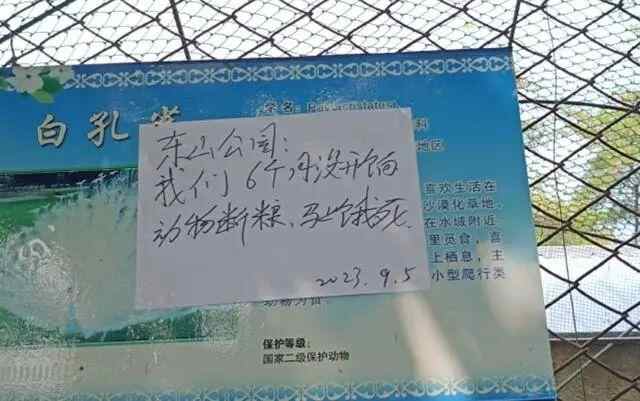 白孔雀
学名：
科
地区
东山公园：
我们6个月没开饷
动物断粮、马上饿死.
2023.9.5
喜欢生活在
沙漠化草地、
在水域附近
里觅食，喜
上栖息，主
小型爬行类
动物为食。
保护等级：
国家二级保护动物